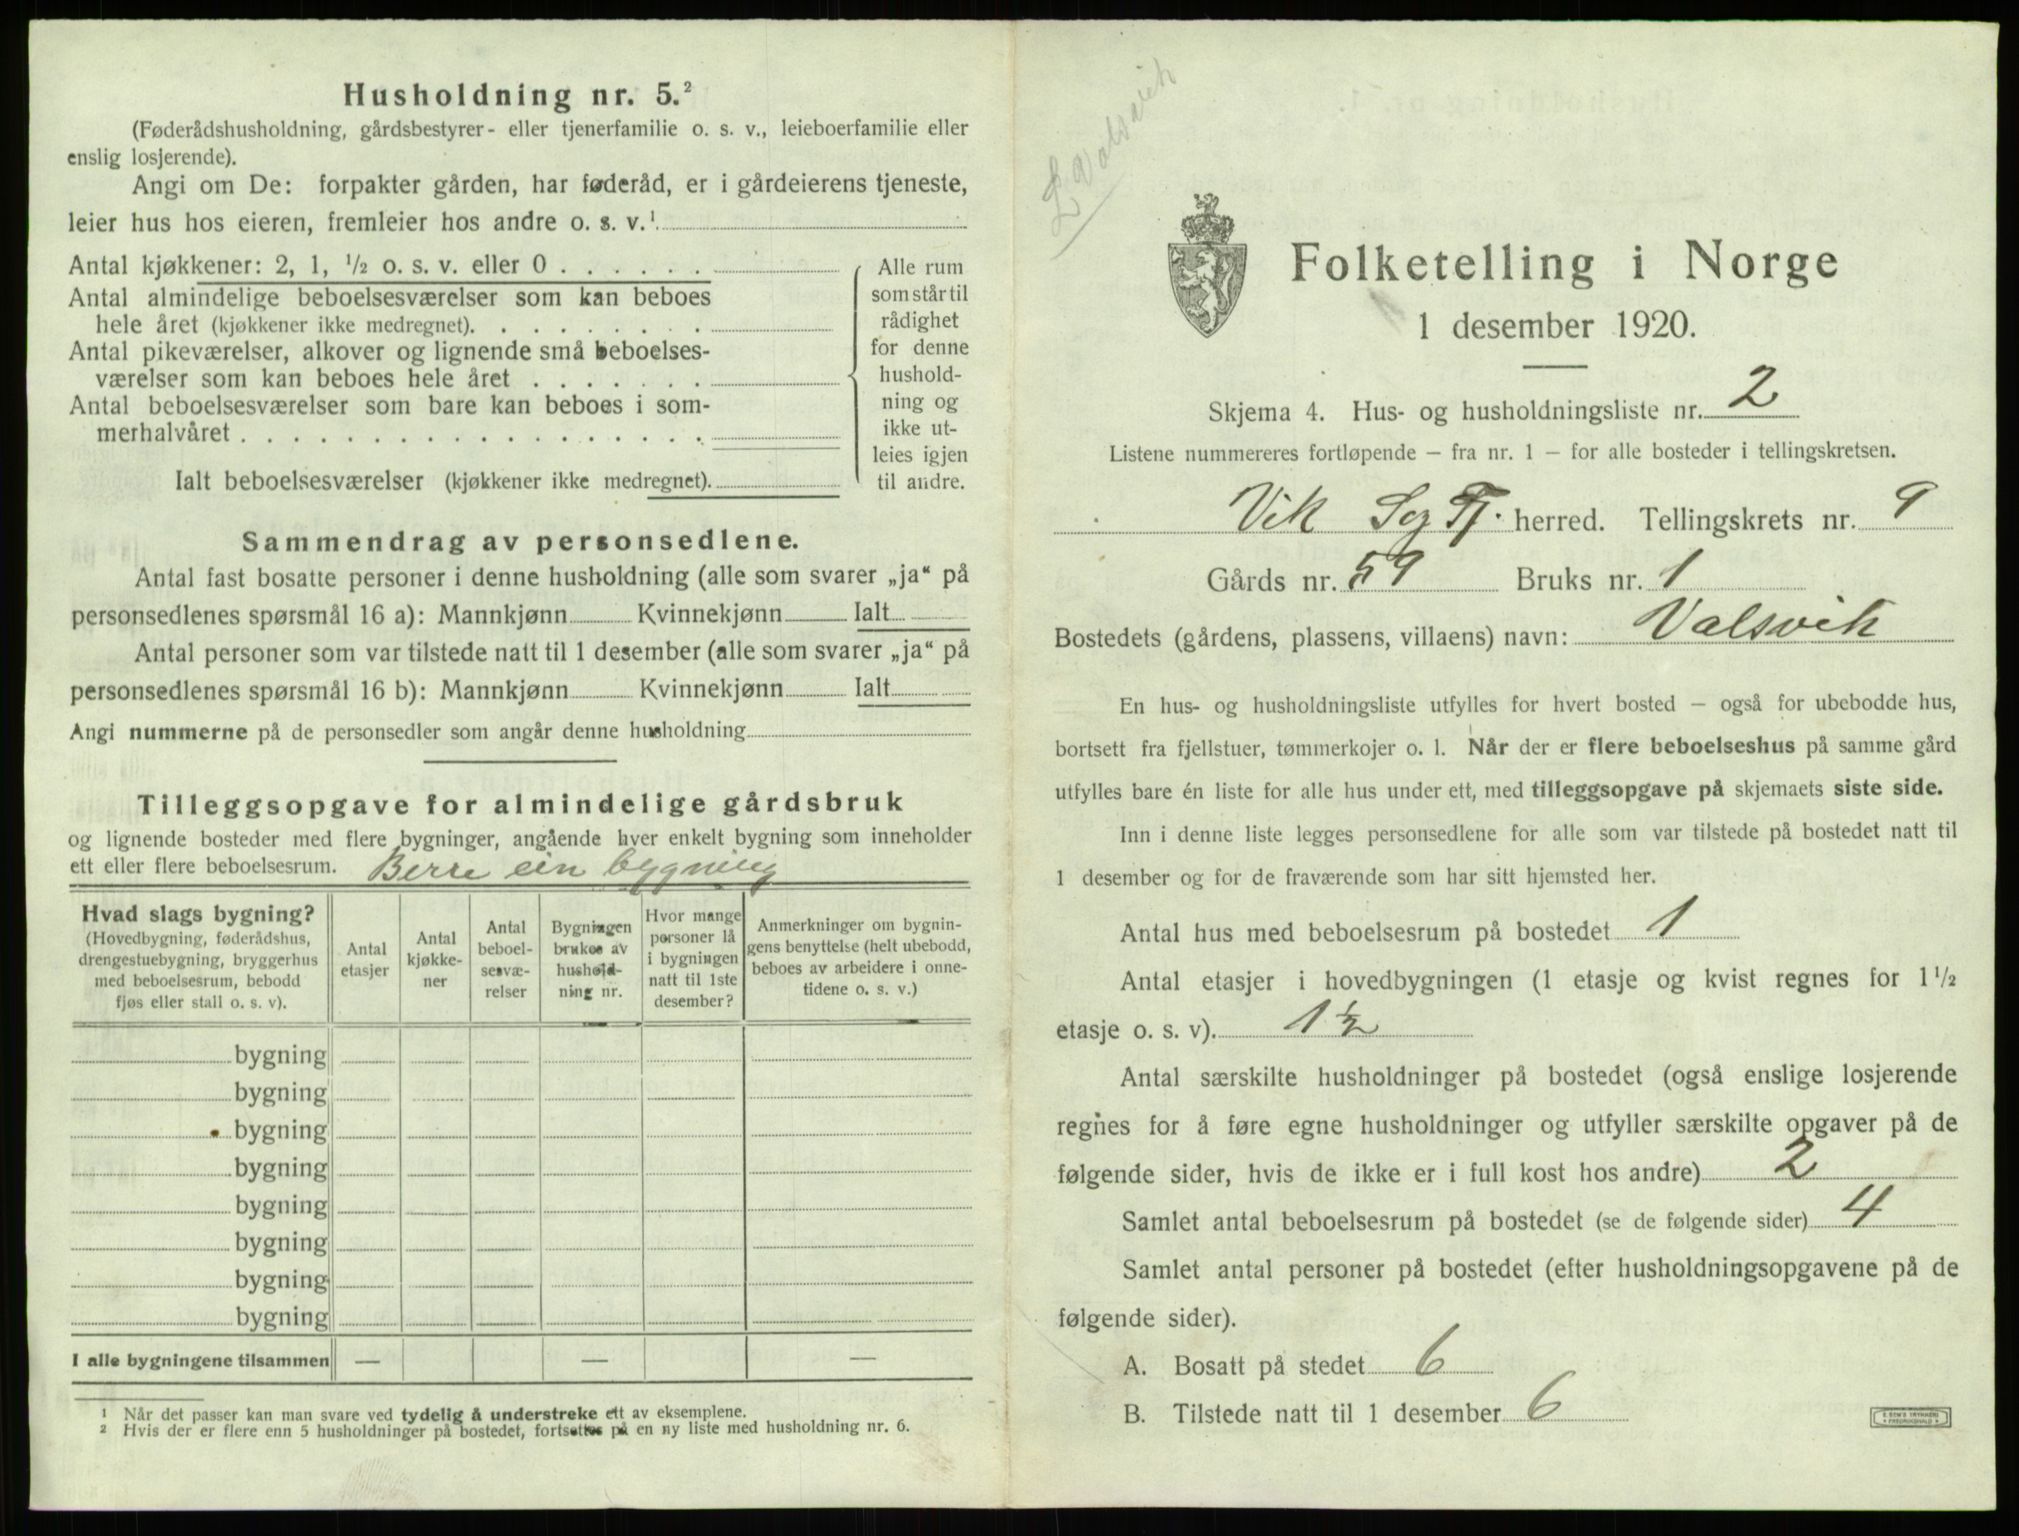 Husholdning nr. 5.²
(Føderådshusholdning, gårdsbestyrer- eller tjenerfamilie o. s. v., leieboerfamilie eller
enslig losjerende).
Angi om De: forpakter gården, har føderåd, er i gårdeierens tjeneste,
leier hus hos eieren, fremleier hos andre o. s. v.¹
Antal kjøkkener: 2, 1, ½ o. s. v. eller 0 . . . . . .
Antal almindelige beboelsesværelser som kan beboes
hele året (kjøkkener ikke medregnet). . . . . . . . .
Antal pikeværelser, alkover og lignende små beboelses-
værelser som kan beboes hele året . . . . . . .
Antal beboelsesværelser som bare kan beboes i som-
merhalvåret . . . . . . . . . . . . . . . . . .
Ialt beboelsesværelser (kjøkkener ikke medregnet).
Alle rum
som står til
rådighet
for denne
hushold-
ning og
ikke ut-
leies igjen
til andre.
Sammendrag av personsedlene.
Antal fast bosatte personer i denne husholdning (alle som svarer „ja“ på
personsedlenes spørsmål 16 a): Mannkjønn Kvinnekjønn Ialt
Antal personer som var tilstede natt til 1 desember (alle som svarer „ja“ på
personsedlenes spørsmål 16 b): Mannkjønn Kvinnekjønn Ialt
Angi nummerne på de personsedler som angår denne husholdning
Tilleggsopgave for almindelige gårdsbruk
og lignende bosteder med flere bygninger, angående hver enkelt bygning som inneholder
ett eller flere beboelsesrum. Berre ein bygning
Hvad slags bygning?
(Hovedbygning, føderådshus,
drengestuebygning, bryggerhus
med beboelsesrum, bebodd
fjøs eller stall o. s. v).
Antal
etasjer
Antal
kjøkke-
ner
Antal
beboel-
sesvæ-
relser
Bygningen
brukes av
hushold-
ning nr.
Hvor mange
personer lå
i bygningen
natt til 1ste
desember?
Anmerkninger om bygnin-
gens benyttelse (helt ubebodd,
beboes av arbeidere i onne-
tidene o. s. v.)
bygning
bygning
bygning
bygning
bygning
bygning
bygning
bygning
I alle bygningene tilsammen — — —
¹ Når det passer kan man svare ved tydelig å understreke ett av eksemplene.
² Hvis der er flere enn 5 husholdninger på bostedet, fortsettes på en ny liste med husholdning nr. 6.
Valsvik
Folketelling i Norge
1 desember 1920.
Skjema 4. Hus- og husholdningsliste nr. 2
Listene nummereres fortløpende – fra nr. 1 – for alle bosteder i tellingskretsen.
Vik Sog Fj. herred. Tellingskrets nr. 9
Gårds nr. 59 Bruks nr. 1
Bostedets (gårdens, plassens, villaens) navn: Valsvik
En hus- og husholdningsliste utfylles for hvert bosted – også for ubebodde hus,
bortsett fra fjellstuer, tømmerkojer o. l. Når der er flere beboelseshus på samme gård
utfylles bare én liste for alle hus under ett, med tilleggsopgave på skjemaets siste side.
Inn i denne liste legges personsedlene for alle som var tilstede på bostedet natt til
1 desember og for de fraværende som har sitt hjemsted her.
Antal hus med beboelsesrum på bostedet 1
Antal etasjer i hovedbygningen (1 etasje og kvist regnes for 1½
etasje o. s. v). 1½
Antal særskilte husholdninger på bostedet (også enslige losjerende
regnes for å føre egne husholdninger og utfyller særskilte opgaver på de
følgende sider, hvis de ikke er i full kost hos andre) 2
Samlet antal beboelsesrum på bostedet (se de følgende sider) 4
Samlet antal personer på bostedet (efter husholdningsopgavene på de
følgende sider).
A. Bosatt på stedet 6
B. Tilstede natt til 1 desember 6